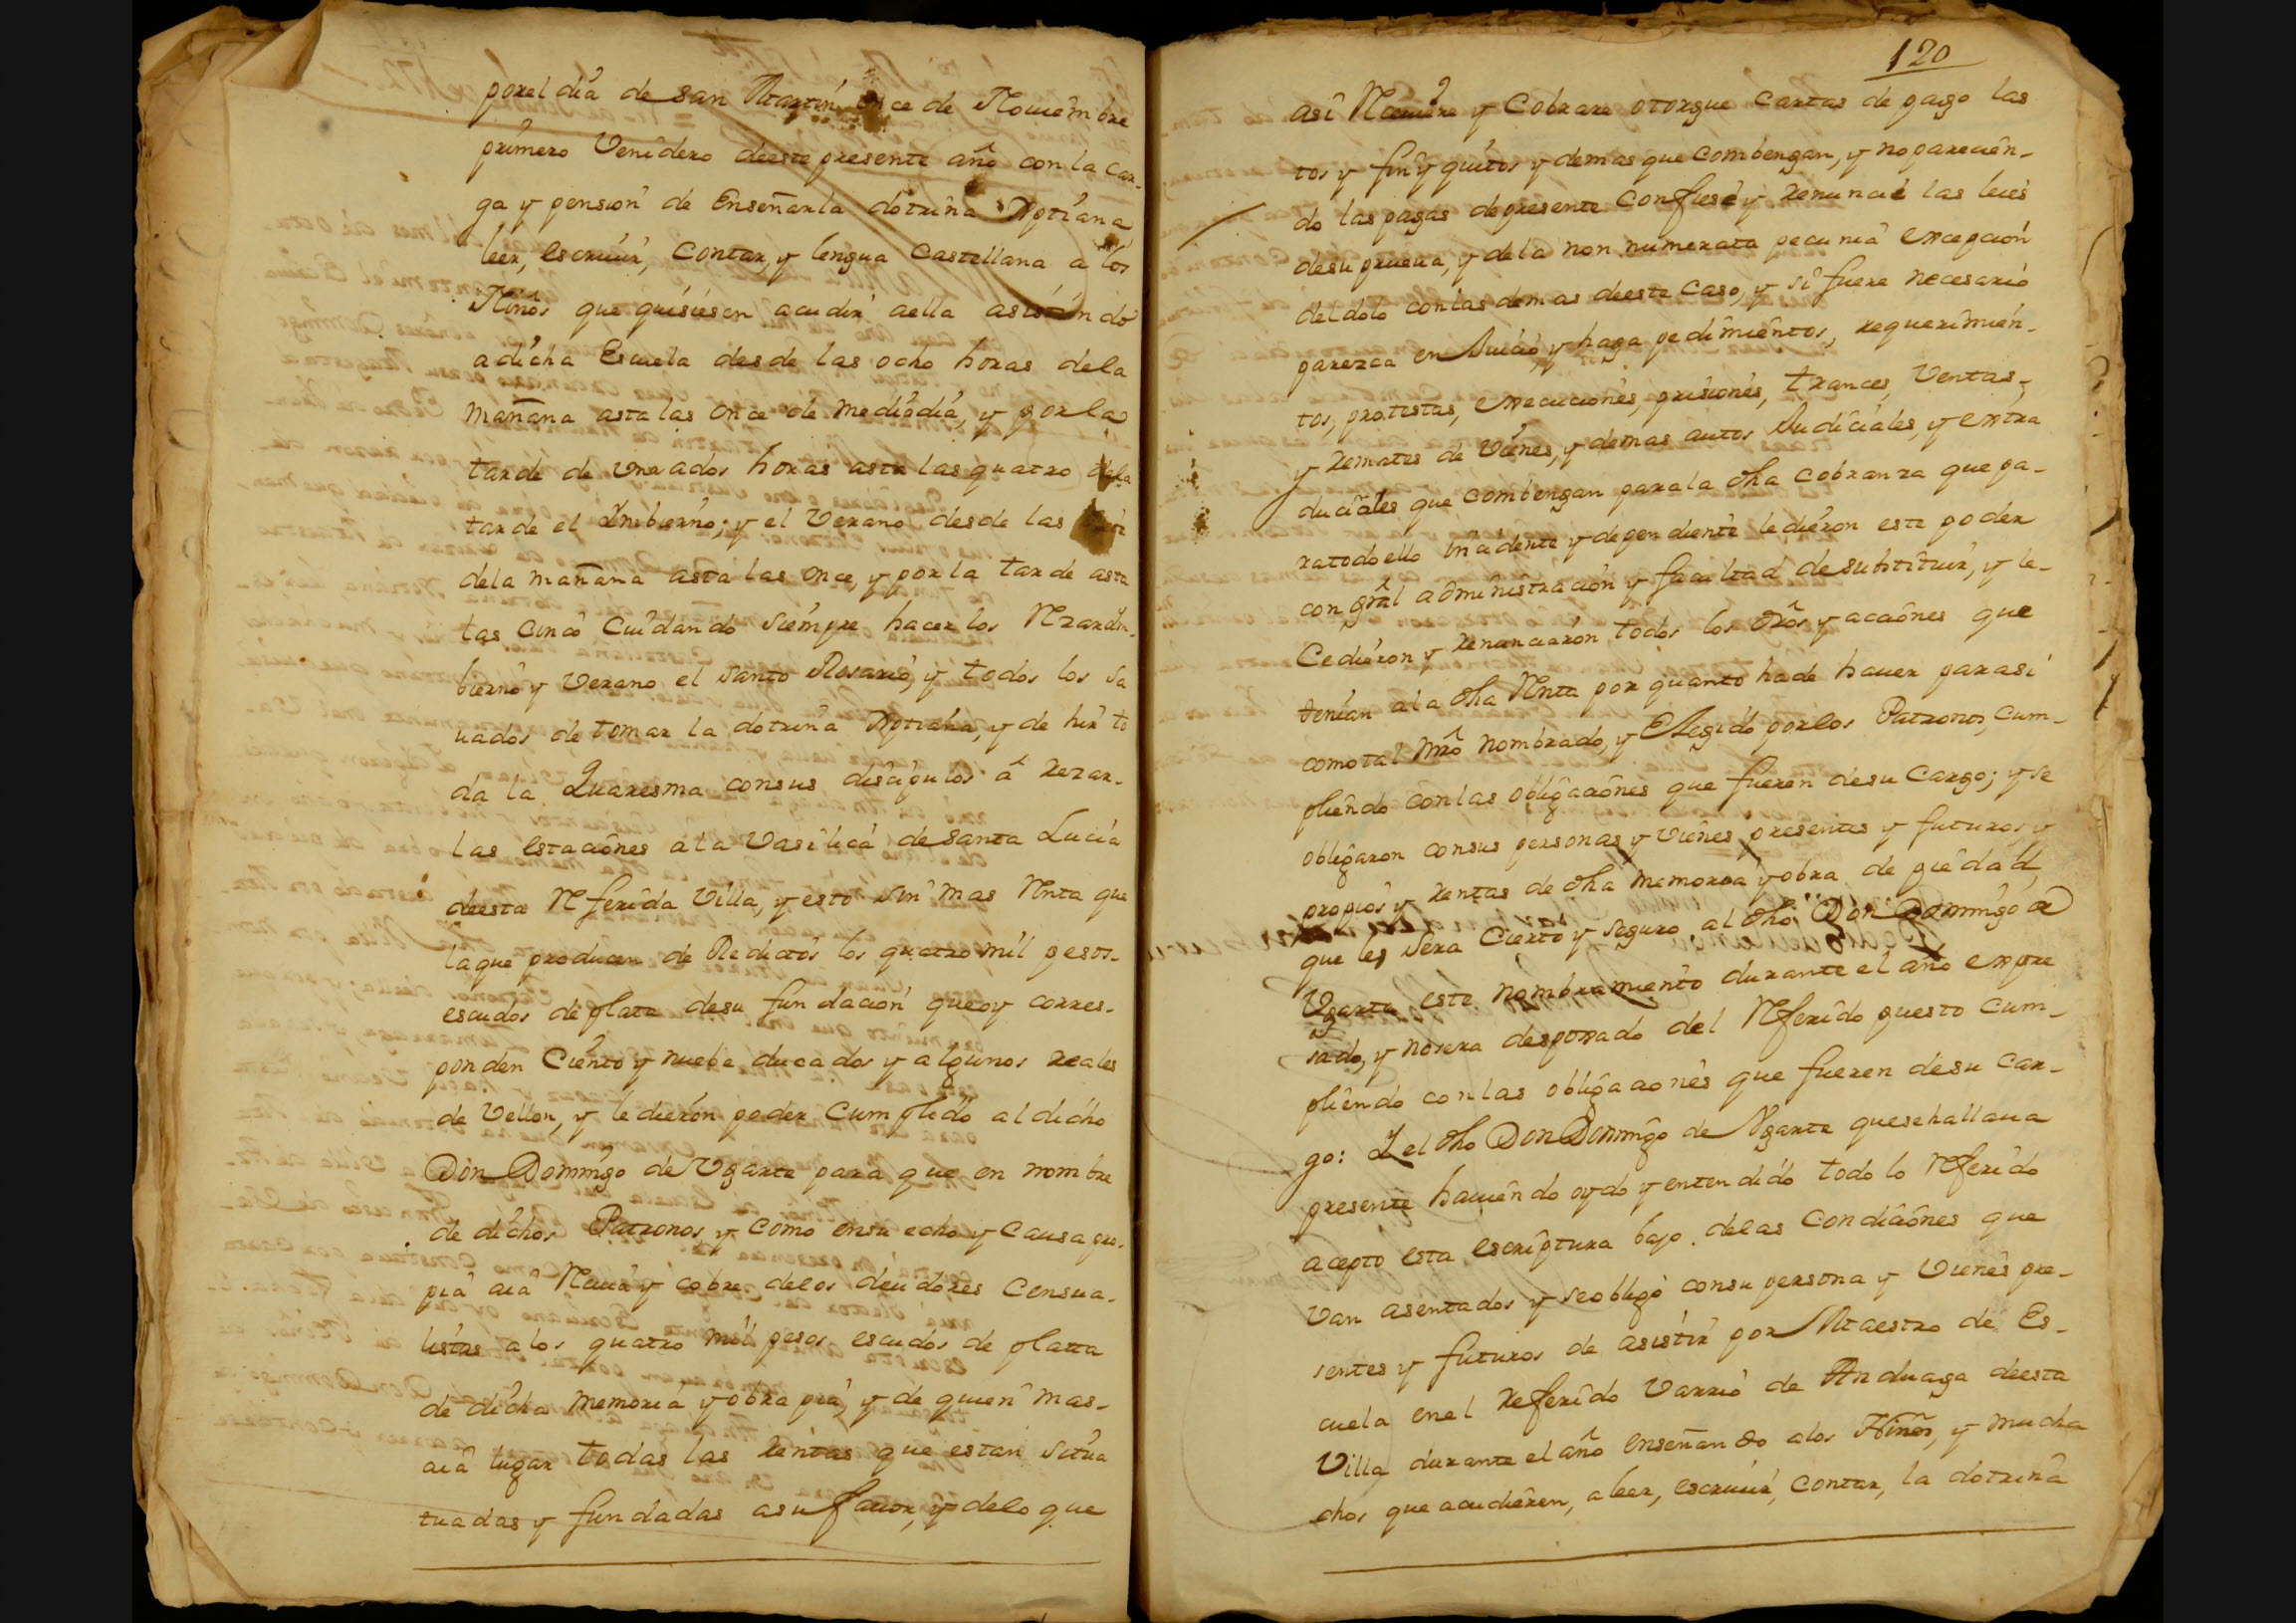 por el día de san Martín once de Nouiembre
primero Venidero deeste presente año con la car-
ga y pension de Enseñarla dotrina Xptiana
leer, escriuir, Contar, y lengua Castellana a los
Niños que quisiesen acudir aella asistiendo
a dicha Escuela desde las ocho horas dela
mañana asta las once de mediodia, y por la
tarde de una ados horas asta las quatro dela
tarde el Imbierno; y el Verano desde las
dela mañana asta las once, y por la tarde asta
las cinco Cuidando siempre hacerlos Rezar Im-
bierno y Verano el santo Rosario, y todos los sa
uados de tomar la dotrina Xptiana, y de hir to
da la Quaresma consus discipulos â rezar-
las estaciones ala Vasilica de santa Lucia
deesta Referida Villa, y esto sin mas Renta que
laque producen de Redictos los quatro mil pesos-
escudos de plata desu fundacion queoy corres-
ponden Ciento y nuebe ducados y algunos reales
de Vellon, y le dieron poder Cumplido al dicho
Don Domingo de Ugarte para que en nombre
de dichos Patronos, y como ensu echo y Causa pro-
pia aia Reciuir y cobre delos deudores Censua-
listas alos quatro mil pesos escudos de platta
de dicha memoria y obra pia, y de quien mas-
aia lugar todas las rentas que estan situa
tuadas y fundadas asu fauor, y delo que
120
asi Reciuiere y Cobrare otorgue cartas de pago las
tos y finy quitos y demas que combengan, y no parecien-
do las pagas depresente Confiese y renuncie las leies
desu prueua, y dela non numerata pecunia excepcion
del dolo con las demas deeste caso, y si fuere necesario
parezca en Juicio y haga pedimientos, requerimien-
tos, protestas, execuciones, prisiones, trances, Ventas,
y remates de Vienes, y demas autos Judiciales, y extra
duciales que combengan parala dha cobranza que pa-
ratodo ello incidente y dependiente le dieron este poder
con gral administracion y facultad desubstituir, y le-
Cedieron y renunciaron todos los dros y acciones que
tenian ala dha Renta por quanto hade hauer parasi
comotal Mro nombrado, y Elegido por los Patronos, cum-
pliendo con las obligaciones que fueren desu Cargo; y se
obligaron consus personas y vienes presentes y futuros, y
propios y rentas de dha memoria y obra de piedad,
que les sera Cierto y seguro al dho Don Domingo de
Ugarte este nombramiento durante el año expre
sado, y nosera desposado del Referido puesto Cum-
pliendo con las obligaciones que fueren desu Car-
go: Y el dho Don Domingo de Ugarte quesehallaua
presente hauiendo oydo y entendido todo lo Referido
acepto esta escriptura bajo delas Condiciones que
Van asentados y seobligò consu persona y Vienes pre-
sentes y futuros de asistir por Maestro de Es-
cuela enel referido Varrio de Anduaga deesta
Villa durante el año enseñando alos Niños, y mucha
chos que acudieren, a leer, escriuir, Contar, la dotrina